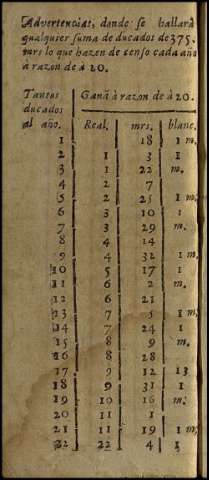 Advertencia:, donde se hallarà
qualquier suma de ducados de 375.
mrs lo que hazen de senso cada año
à razon de à 20.
Tantos Ganā à razon de à 20.
ducados
al año. Real. mrs. blanc.
1 18 1 m.
2 1 3 1
3 1 22 m.
4 2 7
5 2 25 1 m,
6 3 10 1
7 3 29 m.
8 4 14
9 4 32 1 m.
10 5 17 1
11 6 2 m.
12 6 21
13 7 5 1 m,
14 7 24 1
15 8 9 m.
16 8 28
17 9 12 13
18 9 31 1
19 10 16 m.
20 11 1
21 11 19 1 m,
22 22 4 1